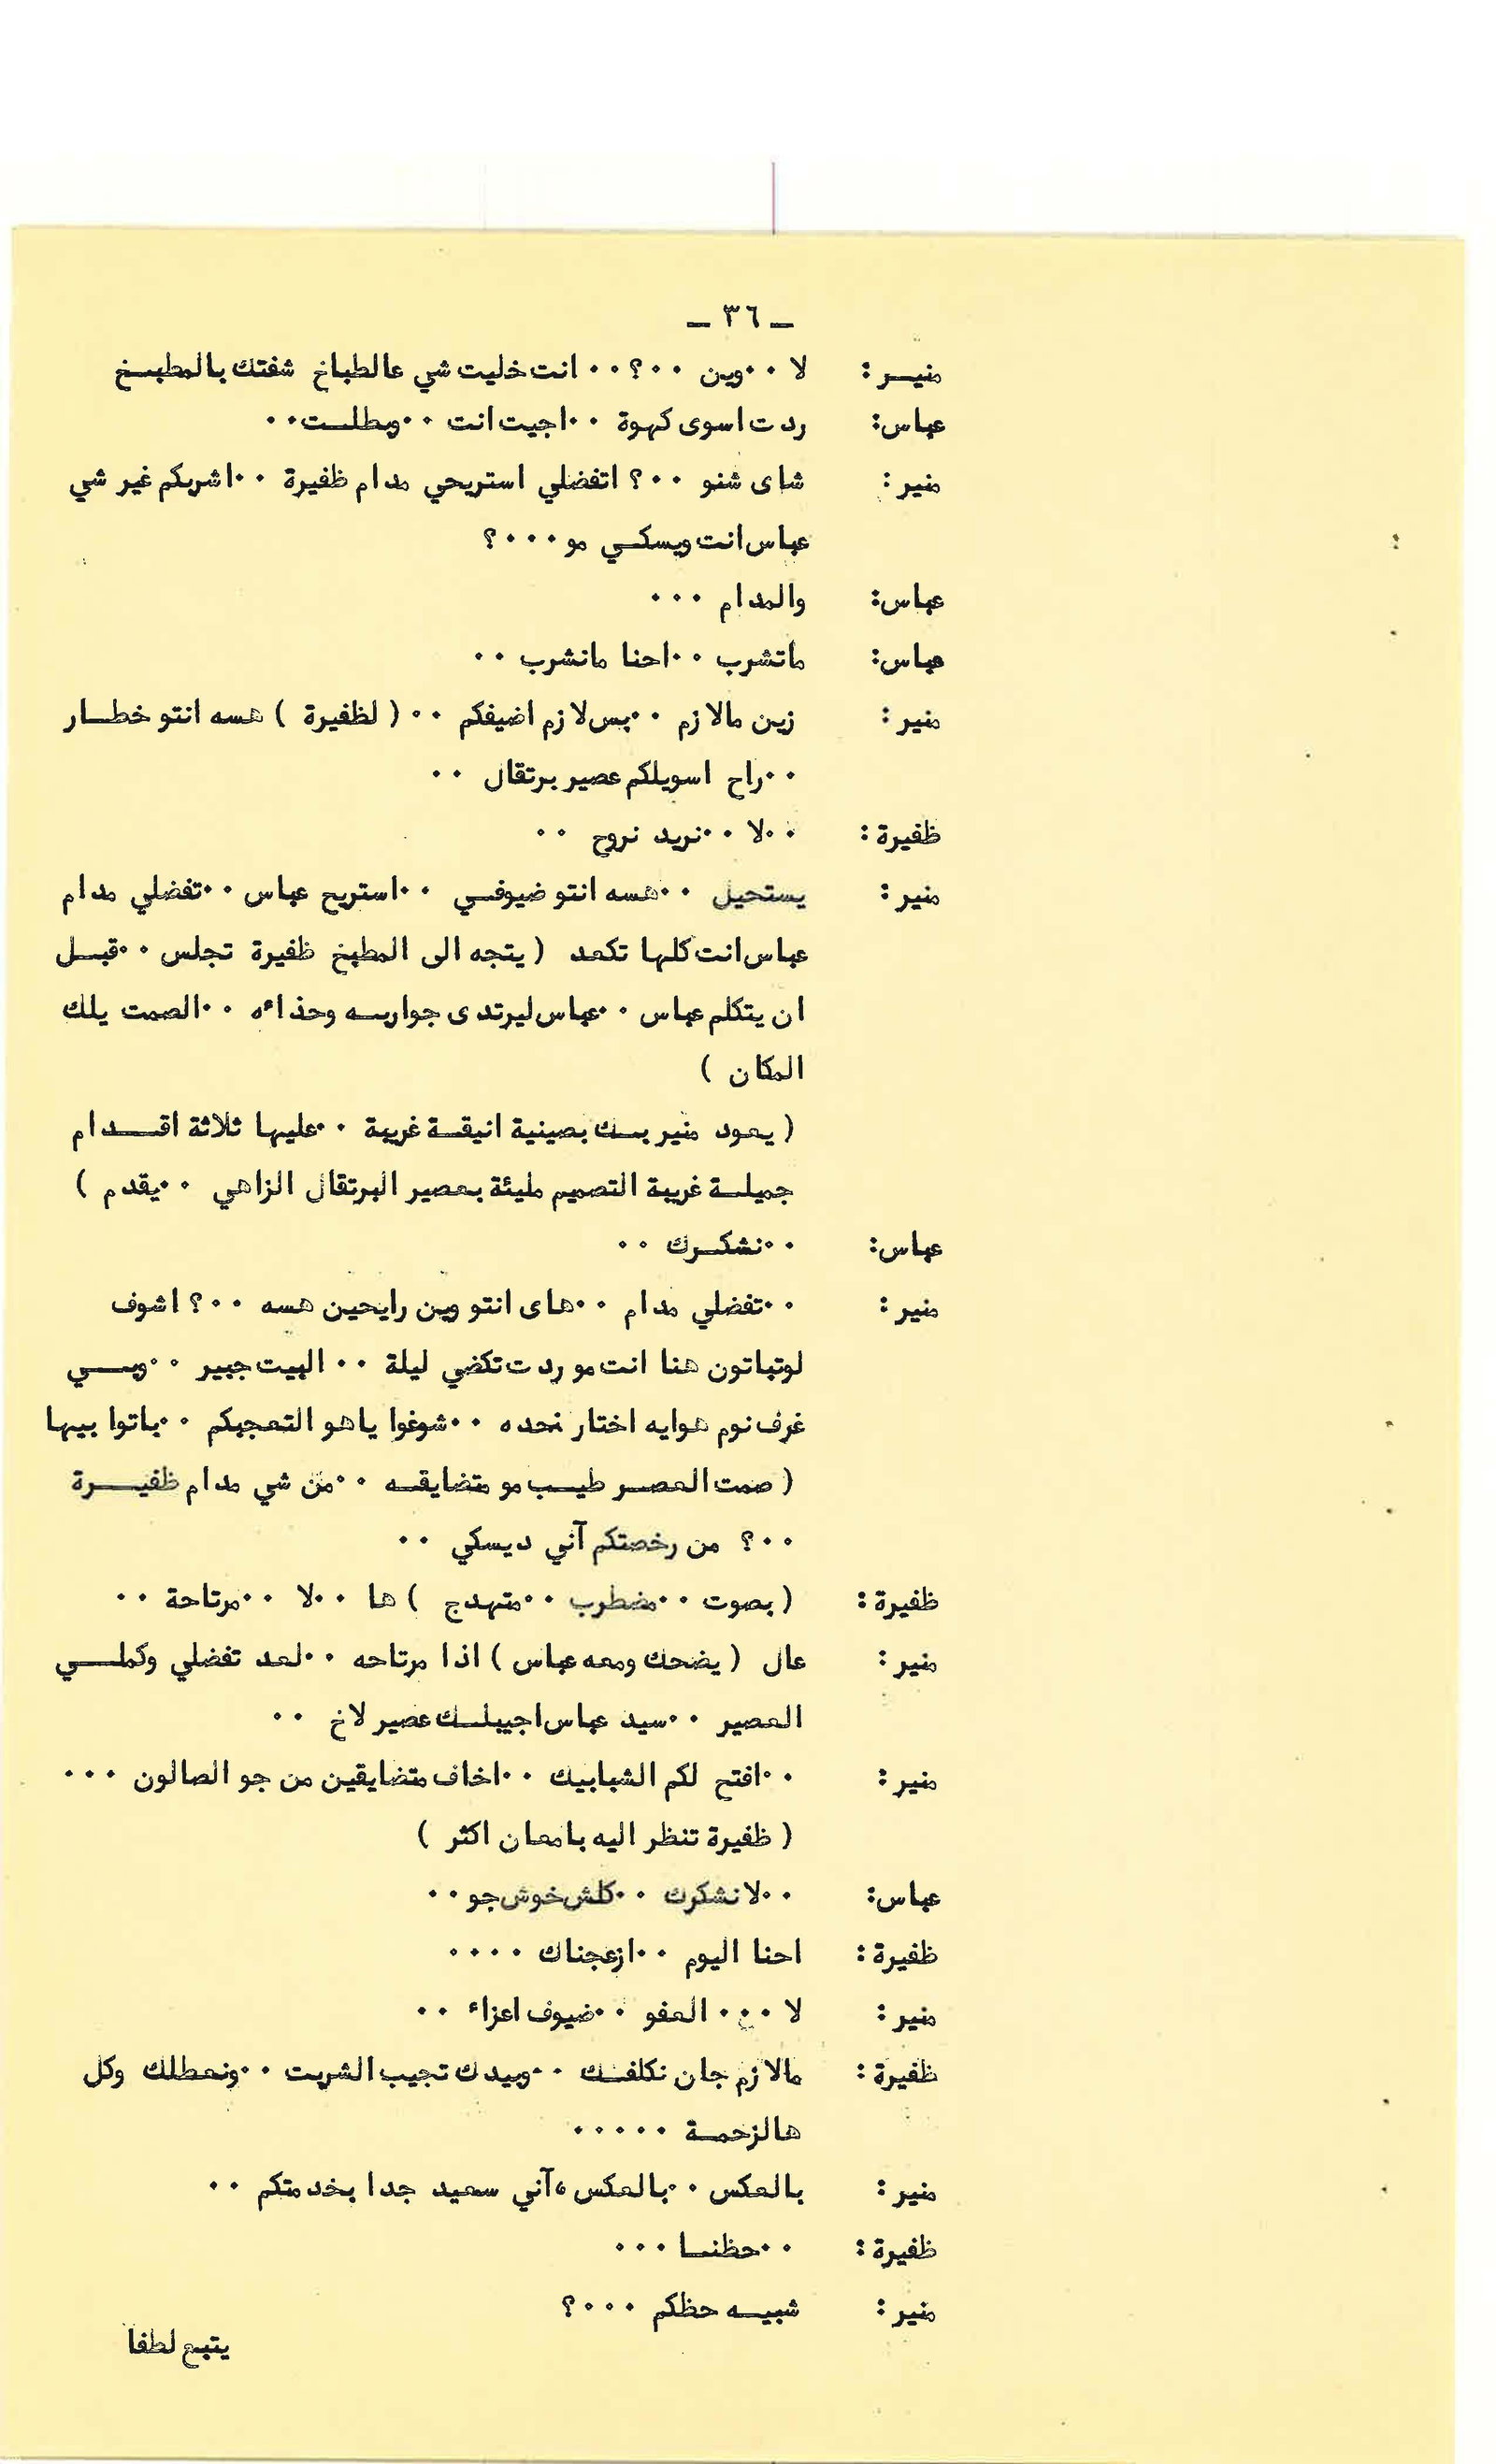 ـ ٣٦ ـ
منيـــر : لا ٠٠وين ٠٠٠؟٠٠ انت خليت شي عالطباخ شفتك بالمطبــخ
عباس: ردت اسوى كهوة ٠٠اجيت انت ٠٠وبطلــت٠٠
منير : شاى شنو ٠٠؟ اتفضلي استريحي مدام ظفيرة ٠٠اشربكم غير شي
عباس انت ويسكــي مو ٠٠٠؟
عباس: والمدام ٠٠٠
عباس: ماتشرب ٠٠احنا مانشرب ٠٠
منير : زين مالازم ٠٠بس لازم اضيفكم ٠٠( لظفيرة ) هسه انتو خطــار
٠٠راح اسويلكم عصير برتقال ٠٠
ظفيرة : ٠٠لا ٠٠نريد نروح ٠٠
منير : يستحيل ٠٠هسه انتو ضيوفــي ٠٠استريح عباس ٠٠تفضلي مدام
عباس انت كلها تكعد ( يتجه الى المطبخ ظفيرة تجلس ٠٠قبــل
ان يتكلم عباس ٠٠عباس ليرتدى جواربــه وحذاءه ٠٠الصمت يلك
المكان )
( يعود منير بــك بصينية انيقــة غريبة ٠٠عليها ثلاثة اقــدام
جميلــة غريبة التصميم مليئة بعصير البرتقال الزاهي ٠٠يقدم )
عباس: ٠٠نشكــرك ٠٠
منير : ٠٠تفضلي مدام ٠٠هاى انتو وين رايحين هسه ٠٠؟ اشوف
لوتباتون هنا انت مو ردت تكضي ليلة ٠٠ البيت جبير ٠٠وبــي
غرف نوم هوايه اختار نحده ٠٠شوغوا ياهو التعجبكم ٠٠باتوا بيها
( صمت العصــر طيــب مو متضايقــه ٠٠من شي مدام ظفيــرة
٠٠؟ من رخصتكم آني ديسكي ٠٠
ظفيرة : ( بصوت ٠٠مضطرب ٠٠متهدج ) ها ٠٠لا ٠٠مرتاحة ٠٠
منير : عال ( يضحك ومعه عباس ) اذا مرتاحه ٠٠لعد تفضلي وكملــي
العصير ٠٠سيد عباس اجيبلــك عصير لاخ ٠٠
منير : ٠٠افتح لكم الشبابيك ٠٠اخاف متضايقين من جو الصالون ٠٠٠
( ظفيرة تنظر اليه بامعان اكثر )
عباس: ٠٠لانشكرك ٠٠كلش خوش جو ٠٠
ظفيرة : احنا اليوم ٠٠ازعجناك ٠٠٠٠
منير : لا ٠٠٠ العفو ٠٠ضيوف اعزاء ٠٠
ظفيرة : مالازم جان نكلفــك ٠٠وبيدك تجيب الشربت ٠٠ونعطلك وكل
هالزحمــة ٠٠٠٠٠
منير : بالعكس ٠٠بالعكس ،آني سعيد جدا بخدمتكم ٠٠
ظفيرة : ٠٠حظنــا ٠٠٠
منير : شبيــه حظكم ٠٠٠؟
يتبع لطفا